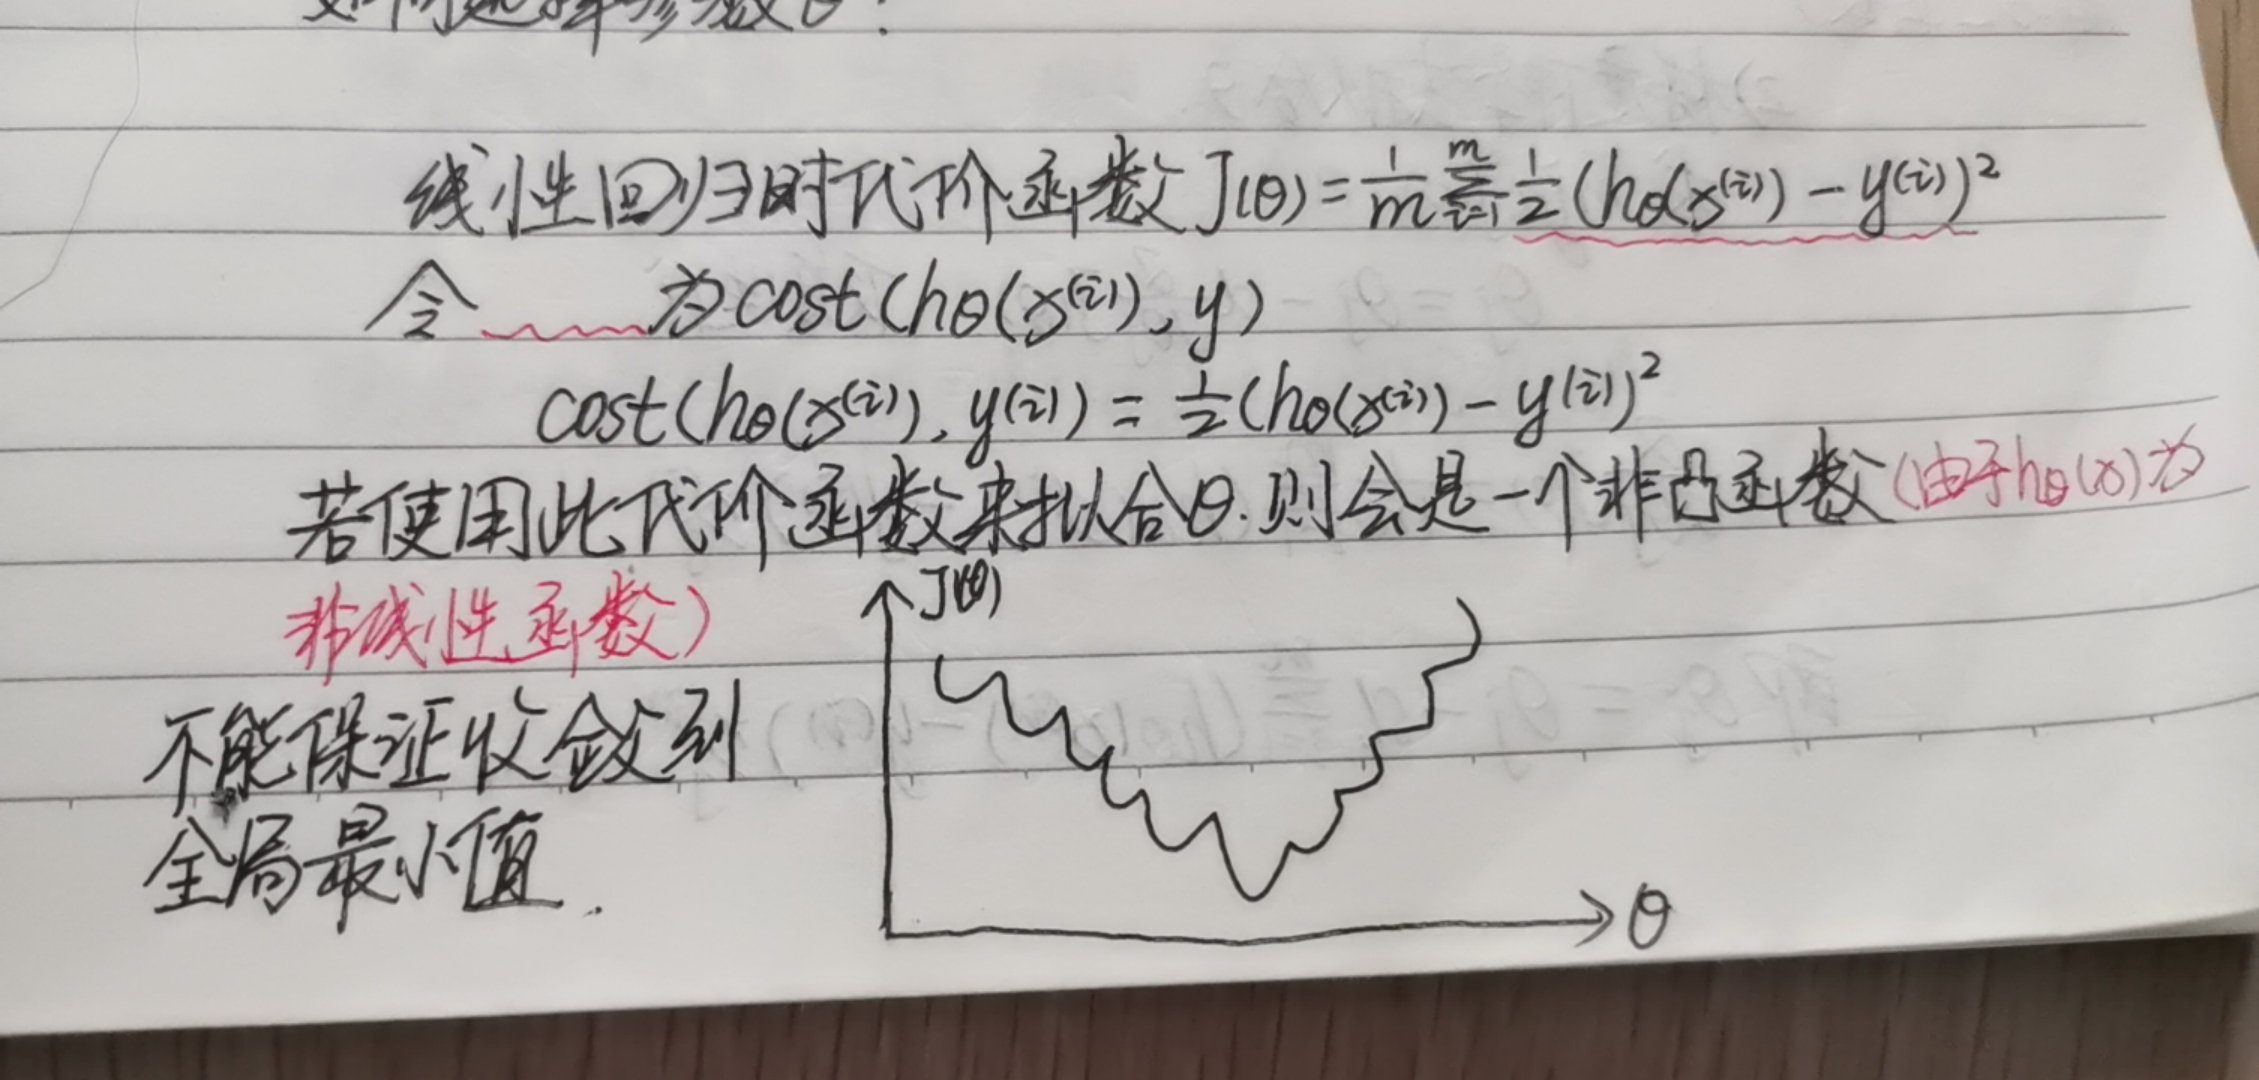 如何选择参数θ?
线性回归时代价函数J(θ) = 1/m Σ_{i=1}^{m} 1/2 (hθ(x^(i)) - y^(i))²
令 为cost(hθ(x^(i)), y)
cost(hθ(x^(i)), y^(i)) = 1/2 (hθ(x^(i)) - y^(i))²
若使用此代价函数来拟合θ.则会是一个非凸函数(由于hθ(x)为
非线性函数)
J(θ)
不能保证收敛到
全局最小值.
θ